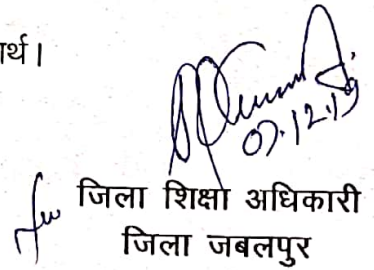 ार्थ।
07.12.19
जिला शिक्षा अधिकारी
जिला जबलपुर